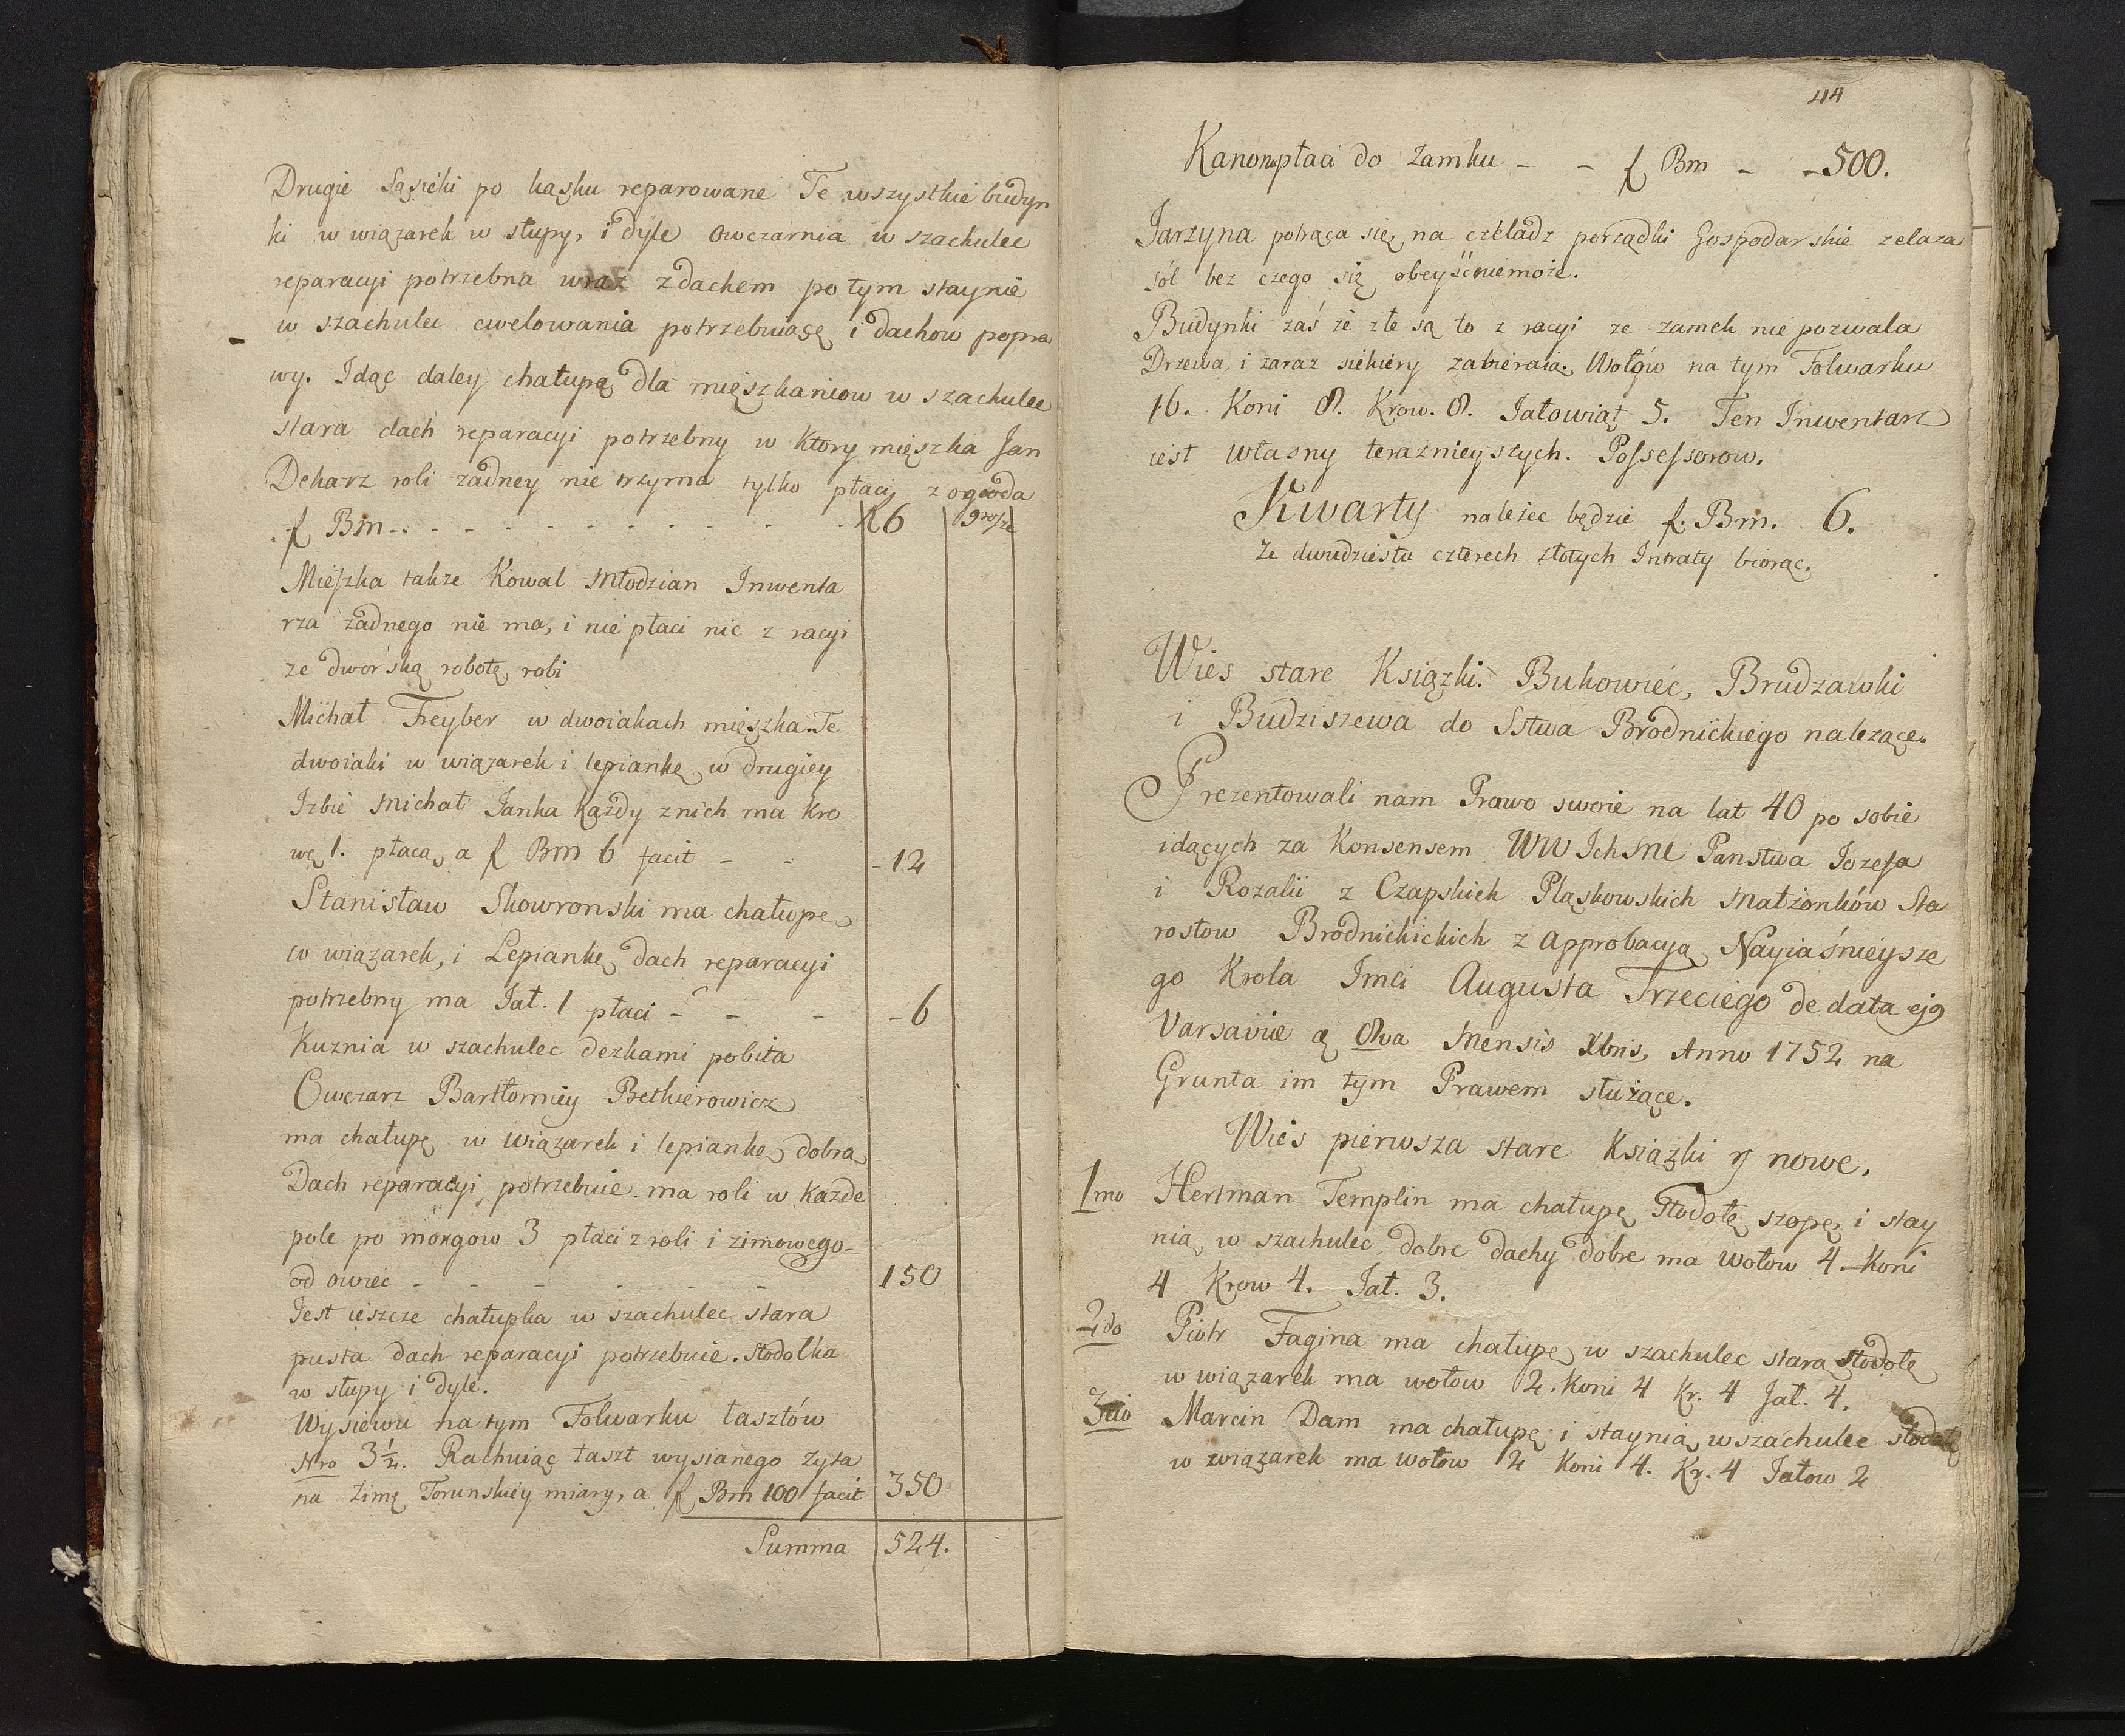 Drugie Sąsieki po kąsku reparowane Te wszystkie budyn
ki w wiązarek w słupy, i dyle Owczarnia w szachulec
reparacyi potrzebna wraz z dachem po tym staynie
w szachulec cwelowania potrzebuiąsę i dachow popra
wy. Idąc daley chałupą dla mięszkancow w szachulec
stara dach reparacyi potrzebny w Ktory mięszka Jan
Dekarz roli zadney nie trzyma tylko płaci z ogroda
f Bm - - - - - - - - - 6 grosze
Mięszka takze Kowal Młodzian Inwenta
rza żadnego nie ma, i nie płaci nic z racyi
ze dworską robotę robi
Michał Freyber w dwoiakach mięszka. Te
dwoiaki w wiązarek i lepiankę w drugiey
Izbie Michał Janka Każdy z nich ma Kro
wę 1. płacą a f Bm 6 facit - - - 12
Stanisław Skowronski ma chałupę
w wiązarek, i Lepiankę dach reparacyi
potrzebny ma Jał. 1 płaci - - - - 6
Kuznia w szachulec dezkami pobita
Owczarz Bartłomiey Bethierowicz
ma chałupę w wiązarek i lepiankę dobra
Dach reparacyi potrzebuie. ma roli w Każde
pole po morgow 3 płaci z roli i zimowego
od owiec - - - - - - 150
Jest ieszcze chałupka w szachulec stara
pusta dach reparacyi potrzebuie. Stodołka
w słupy i dyle.
Wysiewu na tym Folwarku łasztów
Nro 3½. Rachuiąc łaszt wysianego żyta
na Zimę Torunskiey miary, a f Bm 100 facit 350
Summa 524.
44
Kanonu płaci do Zamku - - f Bm - - 500.
Jarzyna potrąca się na czeladz porządki Gospodarskie zelaza
sól bez czego się obeyść niemoże.
Budynki zaś że złe są to z racyi ze zamek nie pozwala
Drzewa, i zaraz siekiery zabieraią. Wołów na tym Folwarku
16. Koni 8. Krow. 8. Jałowiąt 5. Ten Inwentarz
iest własny teraznieyszych. Possessorow.
Kwarty nalezec będzie f. Bm. 6.
Ze dwudziestu czterech złotych Intraty biorąc.
Wies stare Ksiązki. Bukowiec, Brudzawki
i Budziszewa do Sstwa Brodnickiego nalezące.
Prezentowali nam Prawo swoie na lat 40 po sobie
idących za Konsensem WW Ich Mc Panstwa Jozefa
i Rozalii z Czapskich Pląskowskich Małżonków Sta
rostow Brodnickickich z Approbacyą Nayiaśnieysze
go Krola Jmci Augusta Trzeciego de data ej9
Varsavie 8va Mensis Xbris, Anno 1752 na
Grunta im tym Prawem służące.
Wies pierwsza stare Ksiązki y nowe.
1mo Hertman Templin ma chałupę Stodołę szopę i stay
nią w szachulec, dobre dachy dobre ma wołow 4. Koni
4 Krow 4. Jał. 3.
2do Piotr Fagina ma chałupę w szachulec starą Stodołę
w wiązarek ma wołow 2. Koni 4 Kr. 4 Jał. 4.
3tio Marcin Dam ma chałupę i staynią w szachulec stodołę
w wiązarek ma wołow 2 Koni 4. Kr. 4 Jałow 2